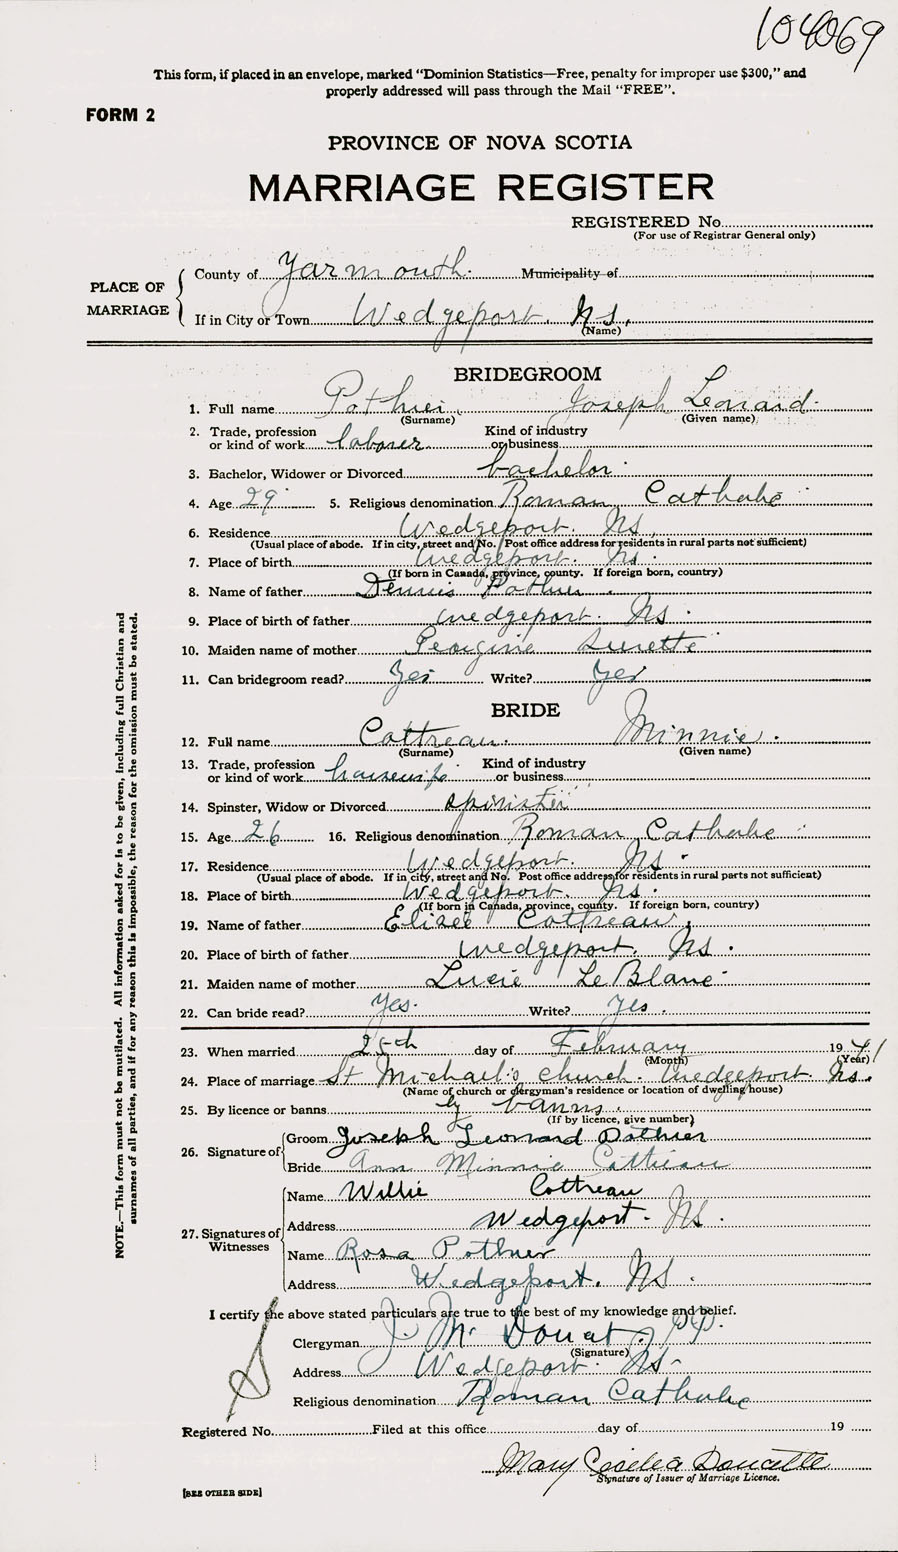 104069
This form, if placed in an envelope, marked "Dominion Statistics—Free, penalty for improper use $300," and
properly addressed will pass through the Mail "FREE".
FORM 2
PROVINCE OF NOVA SCOTIA
MARRIAGE REGISTER
REGISTERED No.
(For use of Registrar General only)
PLACE OF MARRIAGE
County of Yarmouth. Municipality of
If in City or Town Wedgeport. N.S.
(Name)
BRIDEGROOM
1. Full name Pothier, Joseph Leonard.
(Surname) (Given name)
2. Trade, profession or kind of work laborer Kind of industry or business
3. Bachelor, Widower or Divorced bachelor.
4. Age 29 5. Religious denomination Roman Catholic
6. Residence Wedgeport. N.S.
(Usual place of abode. If in city, street and No. Post office address for residents in rural parts not sufficient)
7. Place of birth Wedgeport. N.S.
(If born in Canada, province, county. If foreign born, country)
8. Name of father Dennis Pothier.
9. Place of birth of father Wedgeport. N.S.
10. Maiden name of mother Georgine Surette
11. Can bridegroom read? Yes Write? Yes
BRIDE
12. Full name Cottreau. Minnie.
(Surname) (Given name)
13. Trade, profession or kind of work housewife Kind of industry or business
14. Spinster, Widow or Divorced spinster
15. Age 26 16. Religious denomination Roman Catholic
17. Residence Wedgeport. N.S.
(Usual place of abode. If in city, street and No. Post office address for residents in rural parts not sufficient)
18. Place of birth Wedgeport. N.S.
(If born in Canada, province, county. If foreign born, country)
19. Name of father Elisée Cottreau.
20. Place of birth of father Wedgeport. N.S.
21. Maiden name of mother Lucie LeBlanc
22. Can bride read? Yes. Write? Yes.
23. When married 25th day of February 1941
(Month) (Year)
24. Place of marriage St Michael's church. Wedgeport. N.S.
(Name of church or clergyman's residence or location of dwelling house)
25. By licence or banns by banns.
(If by licence, give number)
26. Signature of Groom Joseph Leonard Pothier
Bride Ann Minnie Cottreau
27. Signatures of Witnesses
Name Willie Cottreau
Address Wedgeport. N.S.
Name Rosa Pothier
Address Wedgeport. N.S.
I certify the above stated particulars are true to the best of my knowledge and belief.
Clergyman J. M. Donat, P.P.
(Signature)
Address Wedgeport. N.S.
Religious denomination Roman Catholic
Registered No. Filed at this office day of 19
Mary Doucette
Signature of Issuer of Marriage Licence.
[SEE OTHER SIDE]
NOTE.—This form must not be mutilated. All information asked for is to be given, including full Christian and
surnames of all parties, and if for any reason this is impossible, the reason for the omission must be stated.